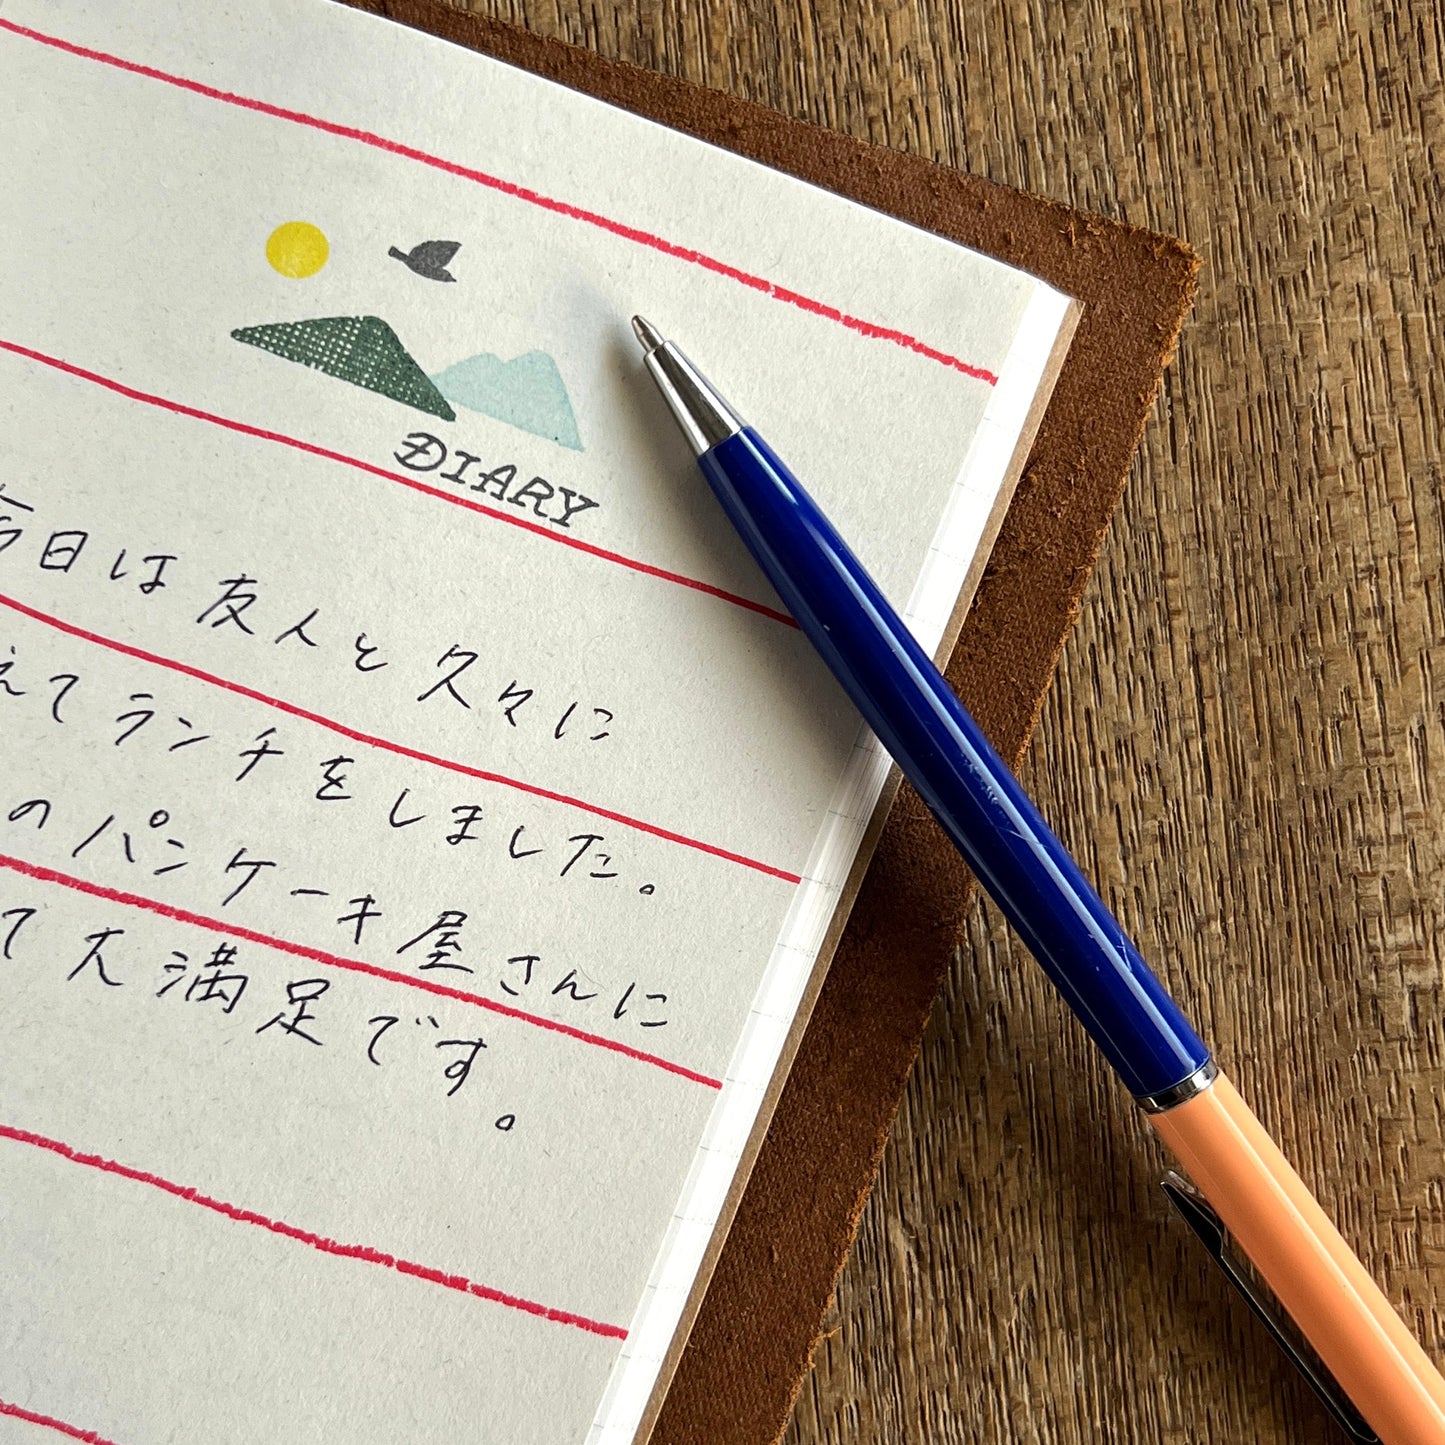 DIARY
今日は友人と久々に
えてランチをしました。
のパンケーキ屋さんに
て大満足です。